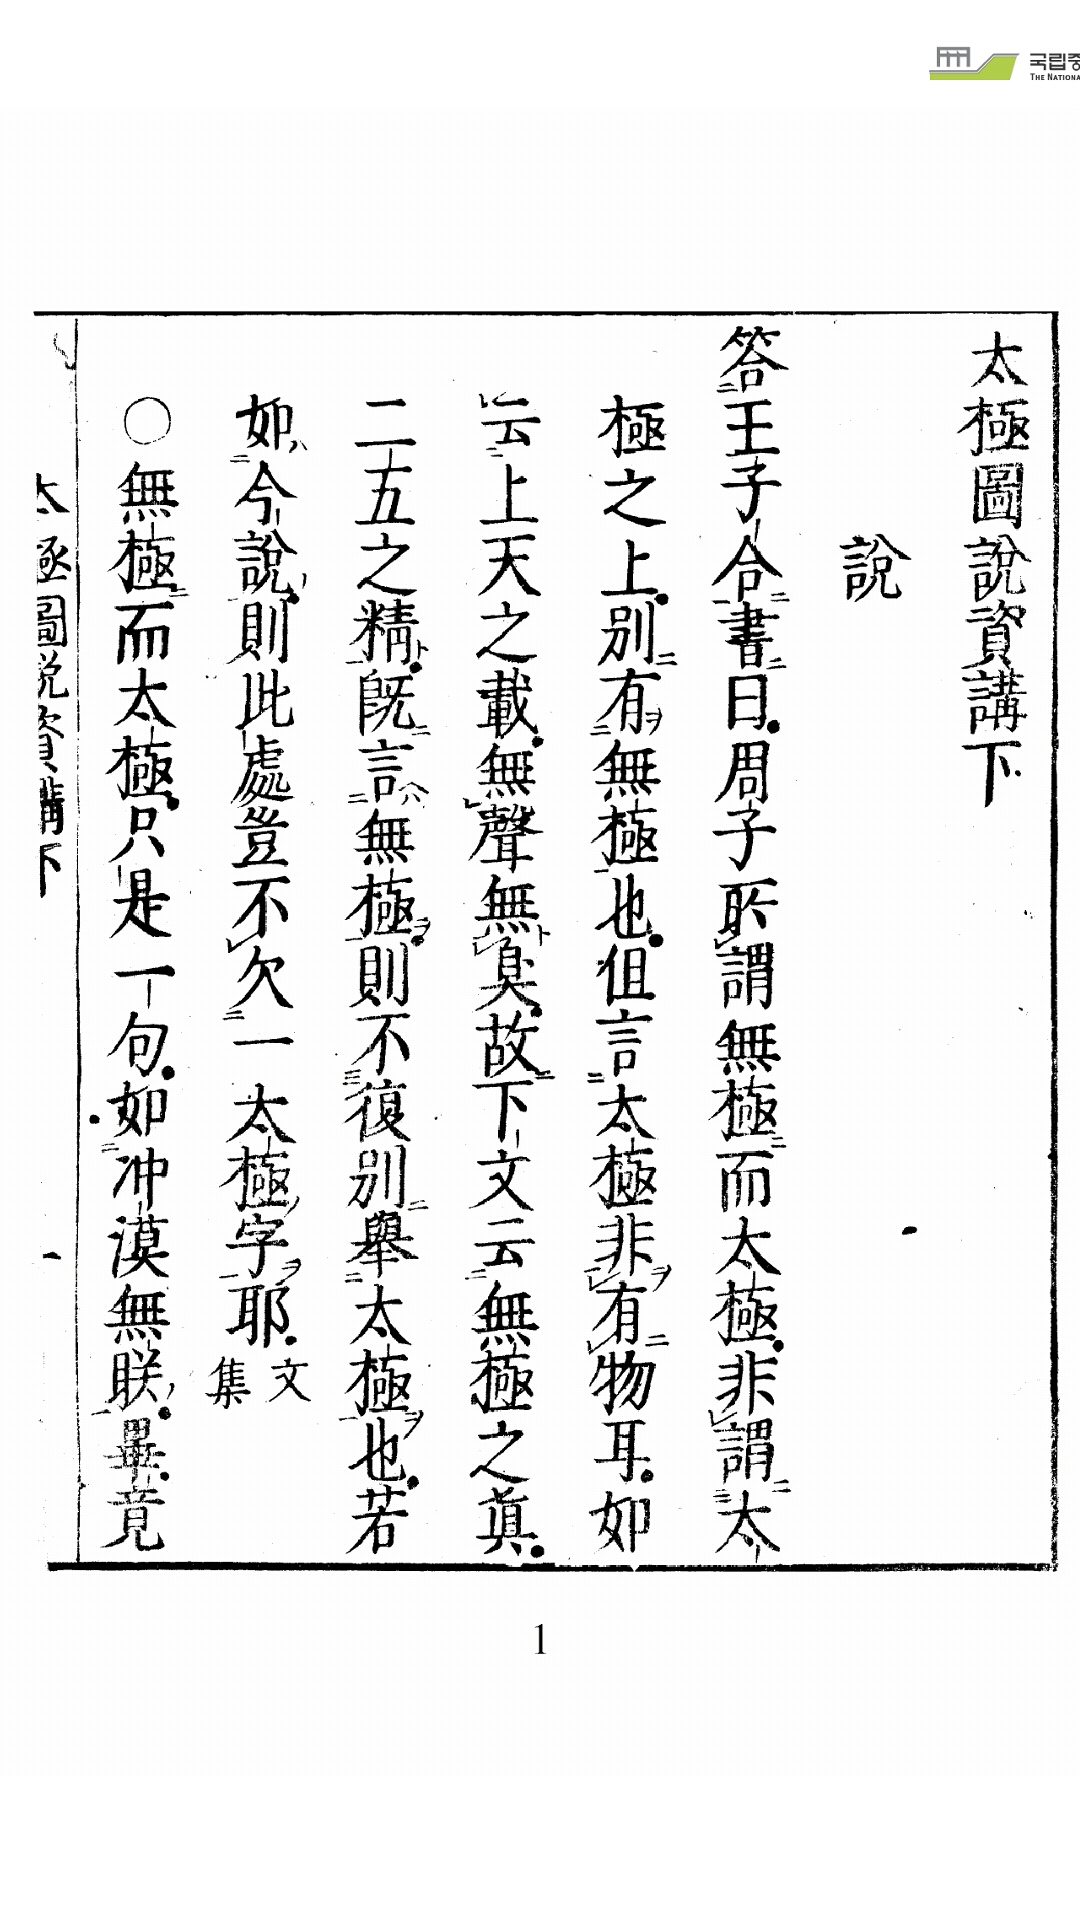 국립중
THE NATIONA
太極圖說資講下
說
答王子合書曰周子所謂無極而太極非謂太
極之上別有無極也但言太極非有物耳如
云上天之載無聲無臭故下文云無極之眞
二五之精既言無極則不復別擧太極也若
如今說則此處豈不欠一太極字耶文集
○無極而太極只是一句如冲漠無朕畢竟
太極圖說資講下
1